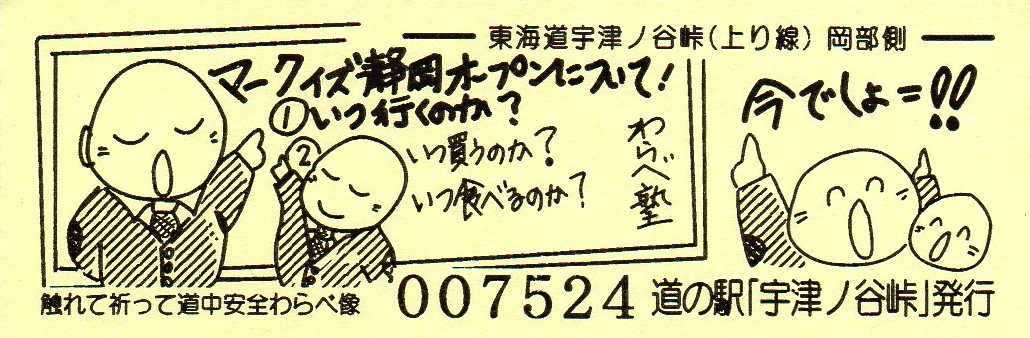 東海道宇津ノ谷峠(上り線) 岡部側
マークイズ静岡オープンについて!
①いつ行くのか?
②いつ買うのか?
いつ食べるのか?
わらべ塾
今でしょ=!!
触れて祈って道中安全わらべ像
007524
道の駅「宇津ノ谷峠」発行